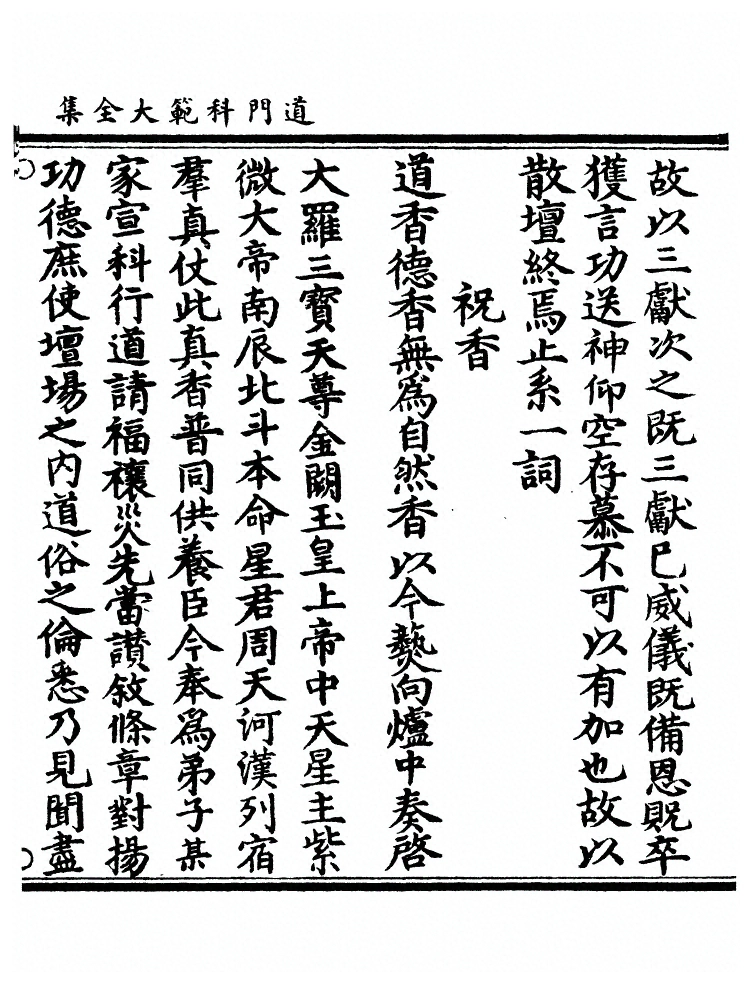 道門科範大全集
故以三獻次之既三獻已威儀既備恩貺卒
獲言功送神仰空存慕不可以有加也故以
散壇終焉止系一詞
祝香
道香德香無為自然香以今爇向爐中奏啓
大羅三寶天尊金闕玉皇上帝中天星主紫
微大帝南辰北斗本命星君周天河漢列宿
羣真仗此真香普同供養臣今奉為弟子某
家宣科行道請福禳災先當讃敘條章對揚
功德庶使壇場之內道俗之倫悉乃見聞盡